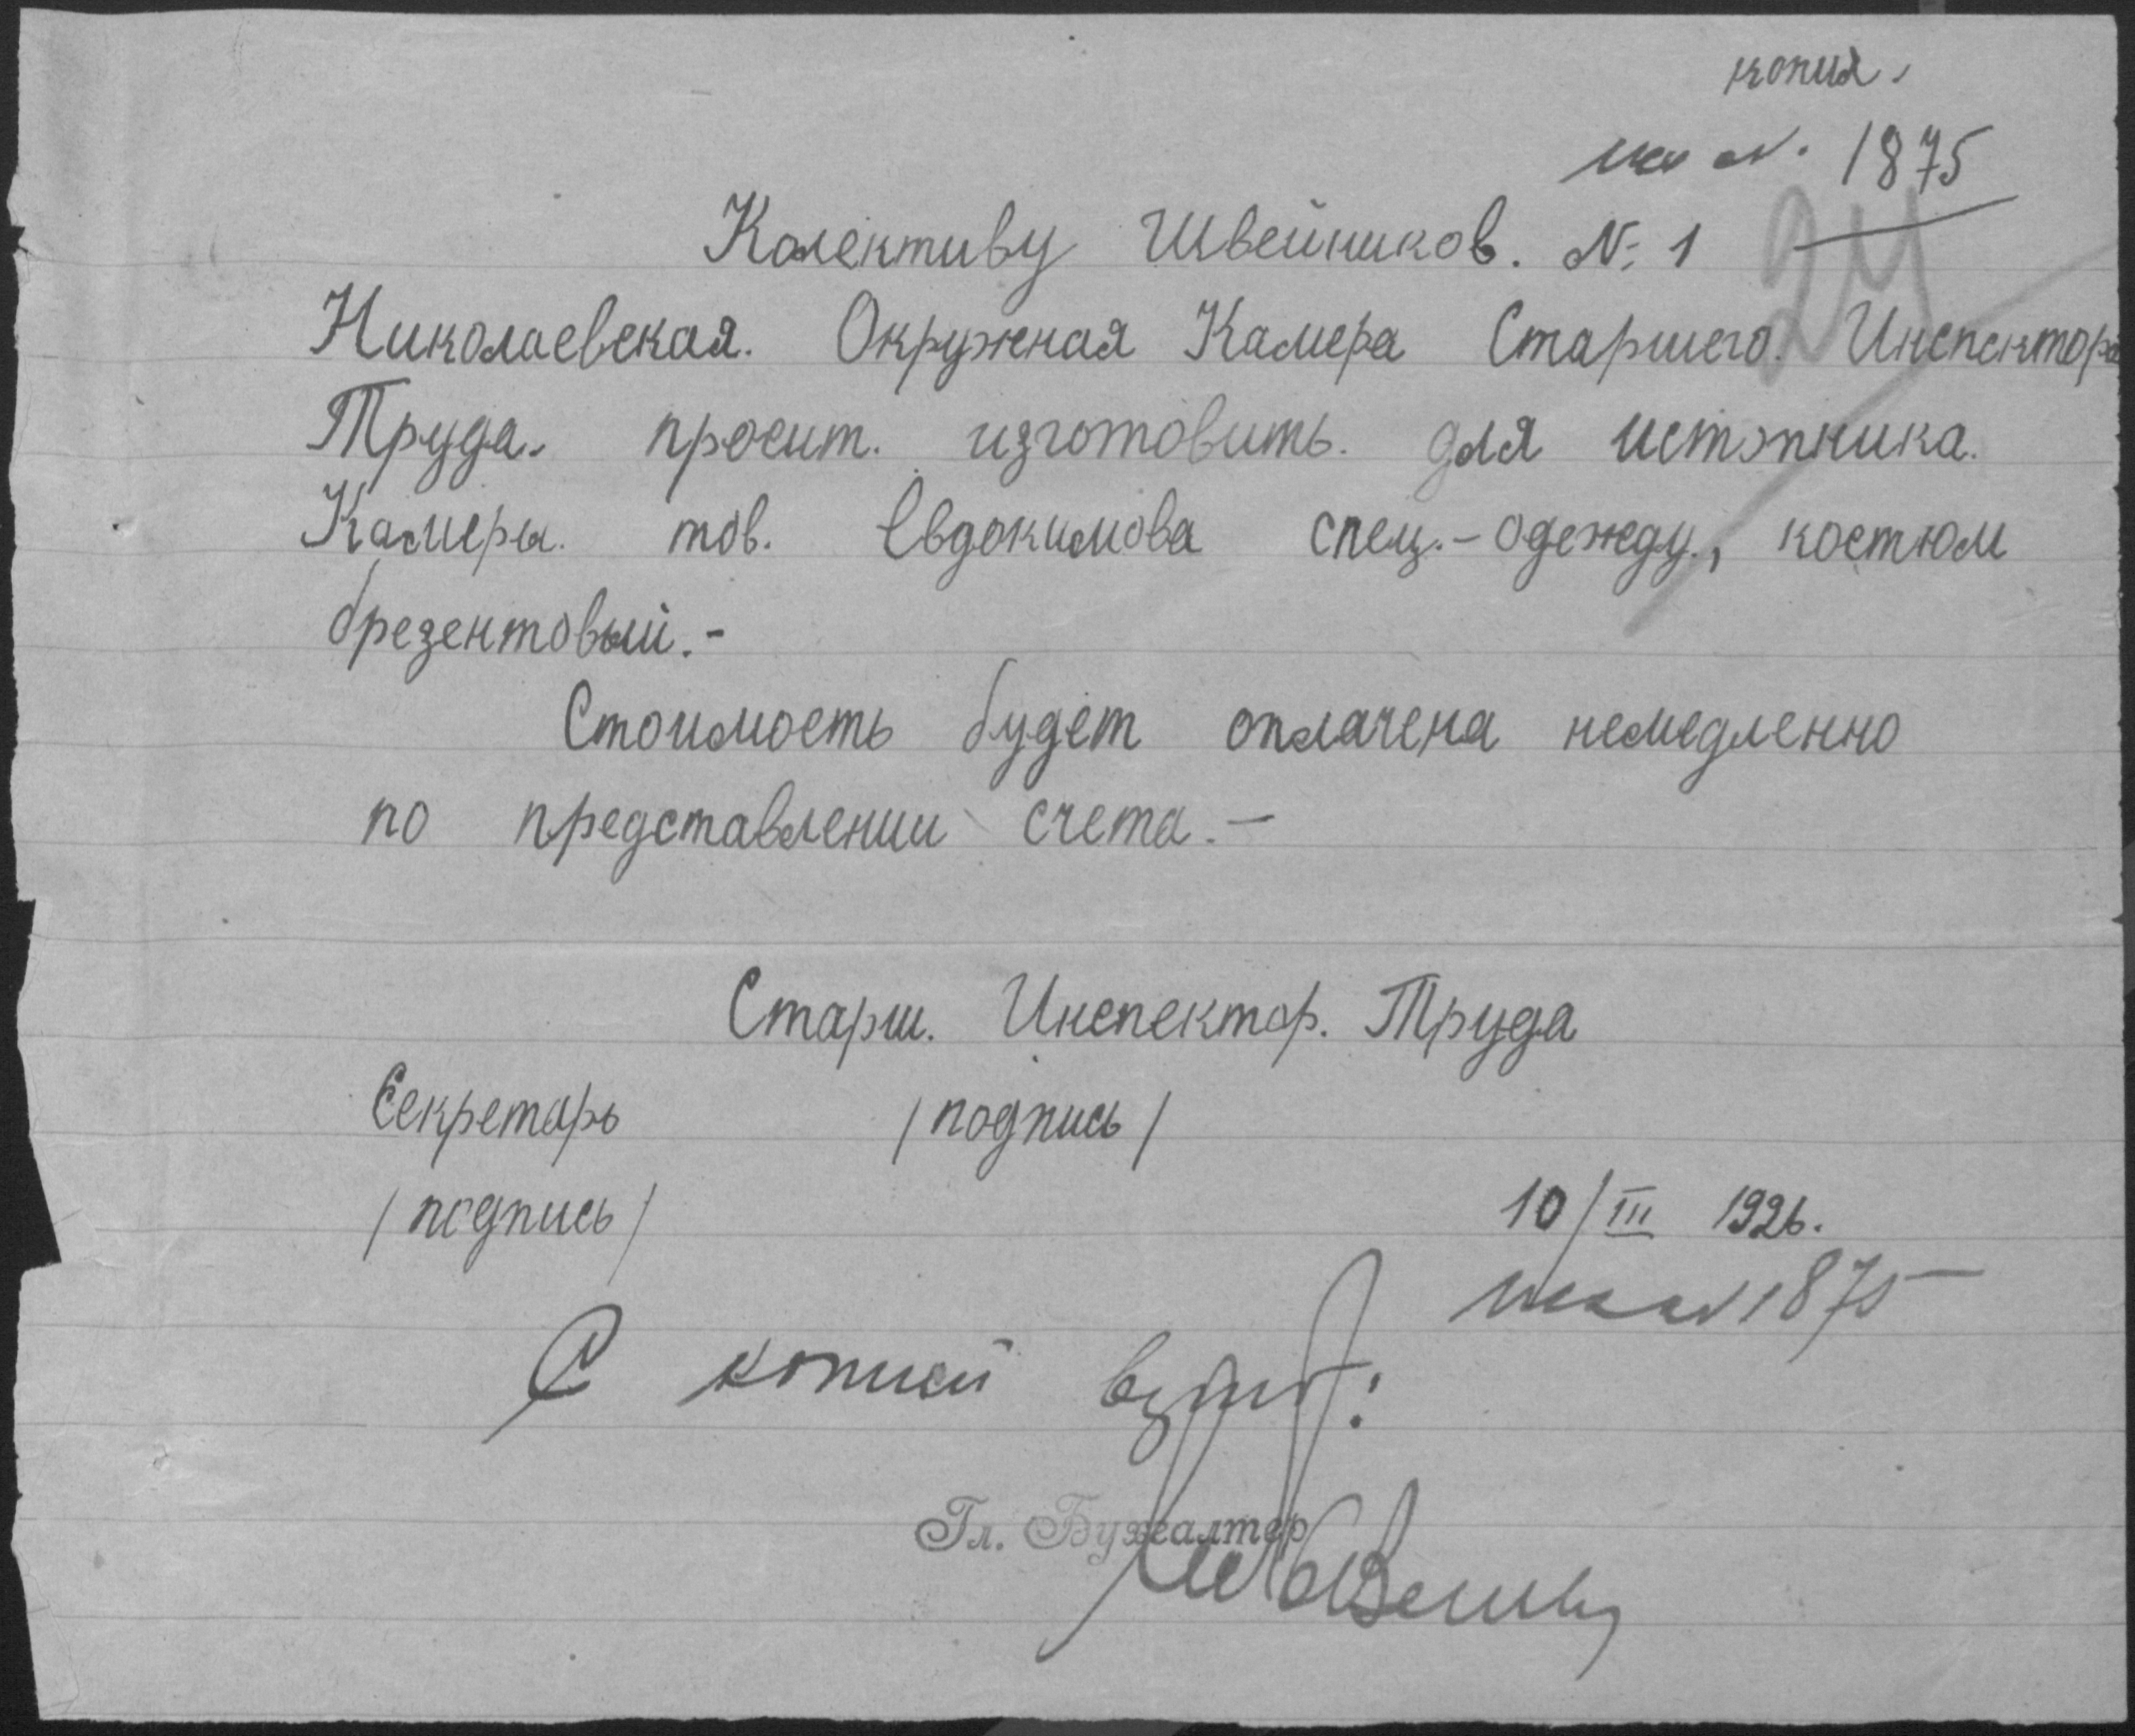 копия.
исх №. 1875
24
Колективу Швейников. №: 1
Николаевская. Окружная Камера Старшего. Инспектора
Труда. просит. изготовить. для истопника.
Камеры. тов. Евдокимова спец.-одежду., костюм
брезентовый.-
Стоимость будет оплачена немедленно
по представлении счета.-
Старш. Инспектор. Труда
Секретарь /подпись/
/подпись/
10/III 1926.
1875
С копией
Гл. Бухгалтер